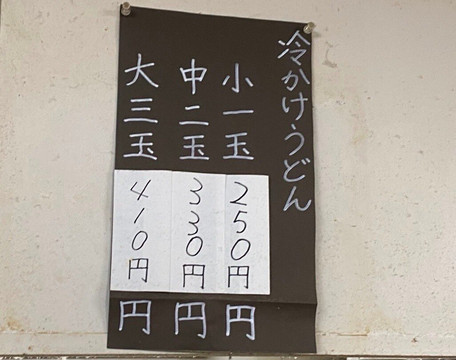 冷かけうどん
小一玉250円円
中二玉330円円
大三玉410円円